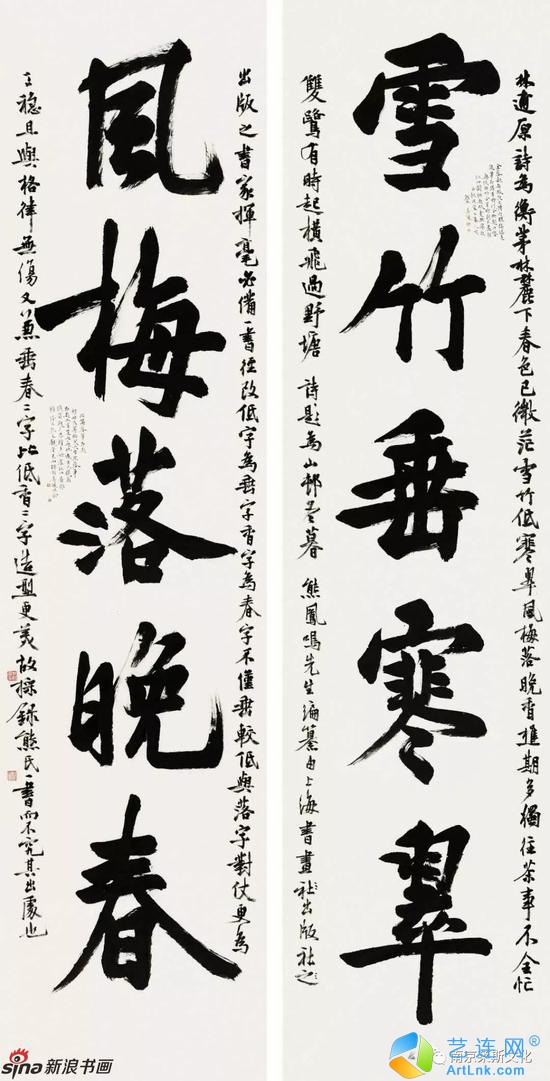 林逋原詩為衡茅林麓下春色已微茫雪竹低寒翠風梅落晚香樵期多獨往茶事不全忙
雪竹垂寒翠
雙鷺有時起橫飛過野塘 詩題為山邨冬暮 熊鳳鳴先生編纂由上海書畫社出版社之
出版之書家揮毫必備一書徑改低字為垂字香字為春字不僅垂較低與落字對仗更為
風梅落晚春
工穩且與格律無傷又兼垂春二字比低香二字造型更美故採錄熊氏一書而不究其出處也
sina新浪书画
南京荣斯文化
艺连网
ArtLnk.com